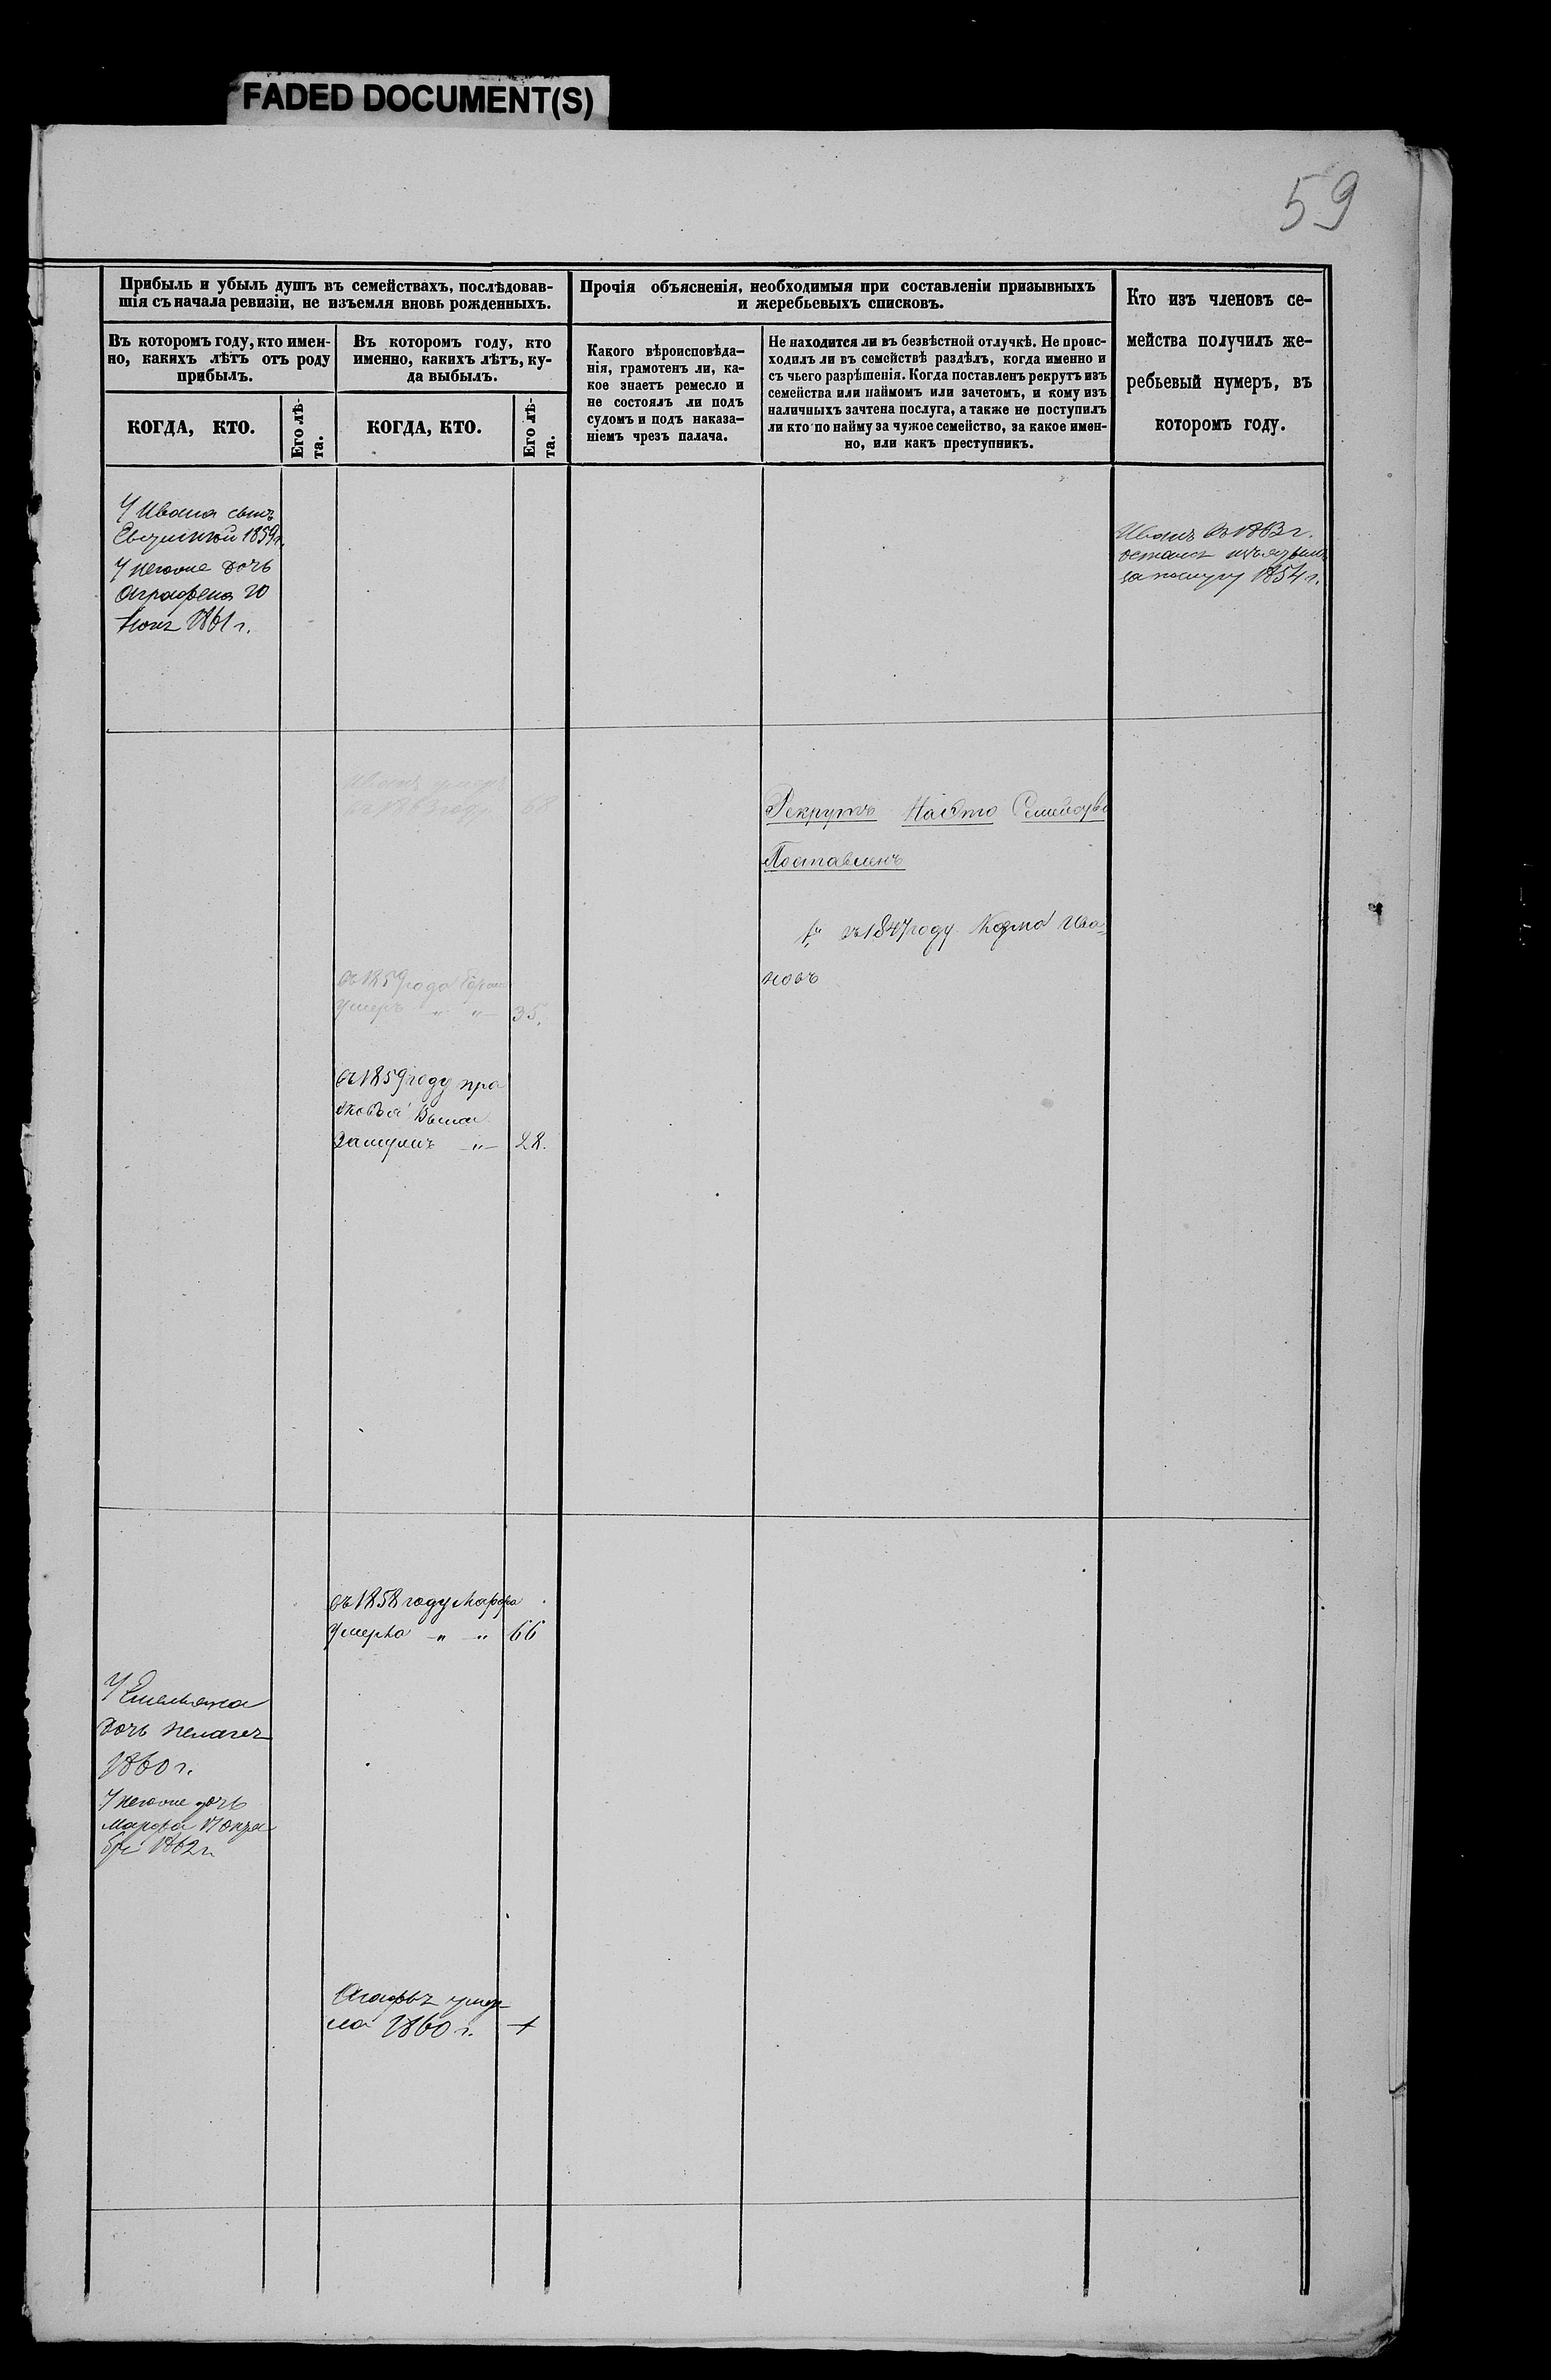 FADED DOCUMENT(S)
59
Прибыль и убыль душъ въ семействахъ, послѣдовав-
шія съ начала ревизіи, не изъемля вновь рожденныхъ.
Въ которомъ году, кто имен-
но, какихъ лѣтъ отъ роду
прибылъ.
КОГДА, КТО.
Его лѣ-
та.
Въ которомъ году, кто
именно, какихъ лѣтъ, ку-
да выбылъ.
КОГДА, КТО.
Его лѣ-
та.
Прочія объясненія, необходимыя при составленіи призывныхъ
и жеребьевыхъ списковъ.
Какого вѣроисповѣда-
нія, грамотенъ ли, ка-
кое знаетъ ремесло и
не состоялъ ли подъ
судомъ и подъ наказа-
ніемъ чрезъ палача.
Не находится ли въ безвѣстной отлучкѣ. Не проис-
ходилъ ли въ семействѣ раздѣлъ, когда именно и
съ чьего разрѣшенія. Когда поставленъ рекрутъ изъ
семейства или наймомъ или зачетомъ, и кому изъ
наличныхъ зачтена послуга, а также не поступилъ
ли кто по найму за чужое семейство, за какое имен-
но, или какъ преступникъ.
Кто изъ членовъ се-
мейства получилъ же-
ребьевый нумеръ, въ
которомъ году.
У Ивана сынъ
1859г.
У негоже дочь
Аграфена 20
1861 г.
Иванъ въ 1863 г.
за послугу 1854 г.
Иванъ умеръ
въ 1863 году 68
Рекрутъ Семейства
Поставленъ
въ 1847 году Козма Ива-
новъ
въ 1859 года
Умеръ " " 35.
въ 1859 году Пра
сковья Вышла
Замужъ " 28.
въ 1858 году Марфа
Умерла " " 66
У Емельяна
дочь Пелагея
1860 г.
У негоже дочь
Марфа 17 Октя
бря 1862 г.
Агафья умер
ла 1860 г. +